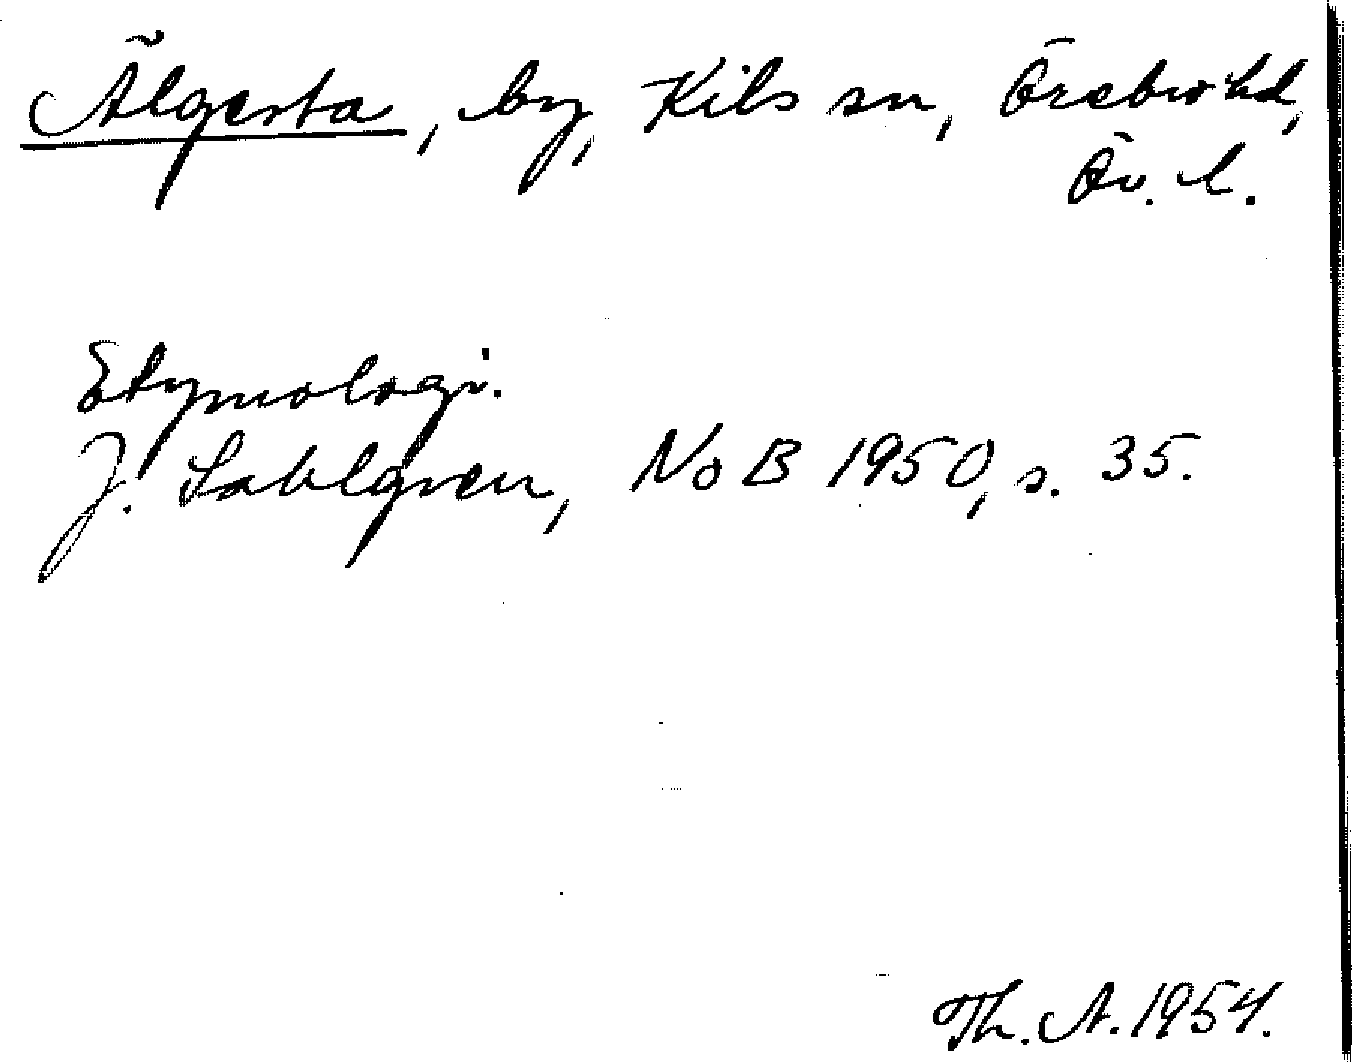 Älgesta, by, Kils sn, Örebro hd,
Ör. l.
Etymologi.
J. Sahlgren, NoB 1950, s. 35.
Th. A. 1954.